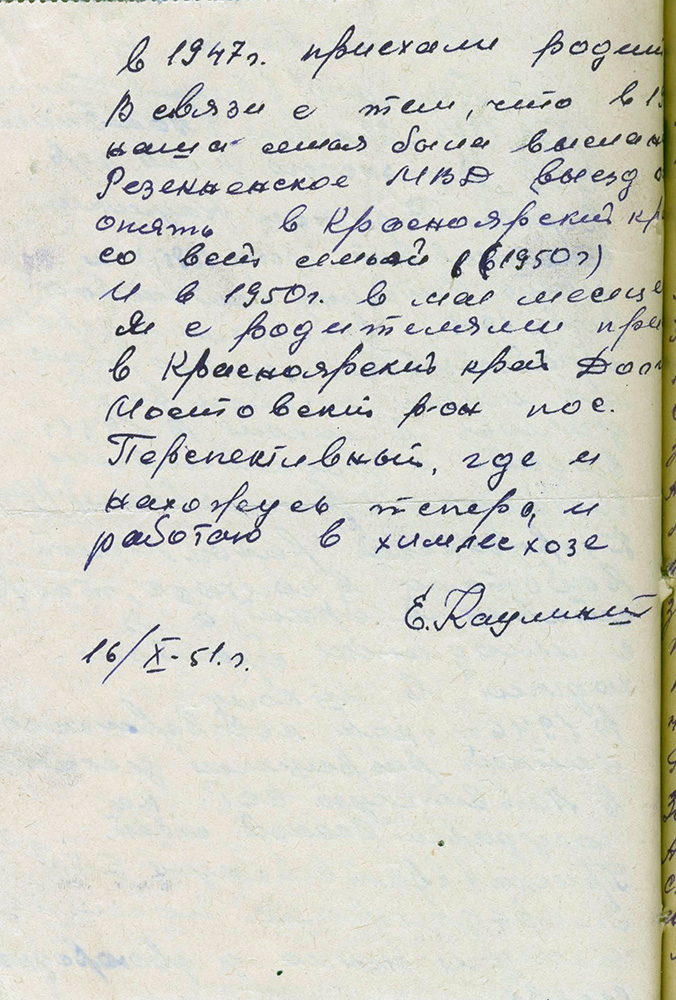 в 1947г. приехали родит
В связи с тем, что в 19
наша семья была выслан
Резекненское МВД выезд
опять в Красноярский кр
со всей семьей (в 1950г)
И в 1950г. в мае месяце
Я с родителями при
в Красноярский край Дол
Мостовский р-он пос.
Перспективный, где и
нахожусь теперь, и
работаю в химлесхозе
Е. Каулинит
16/X-51.г.